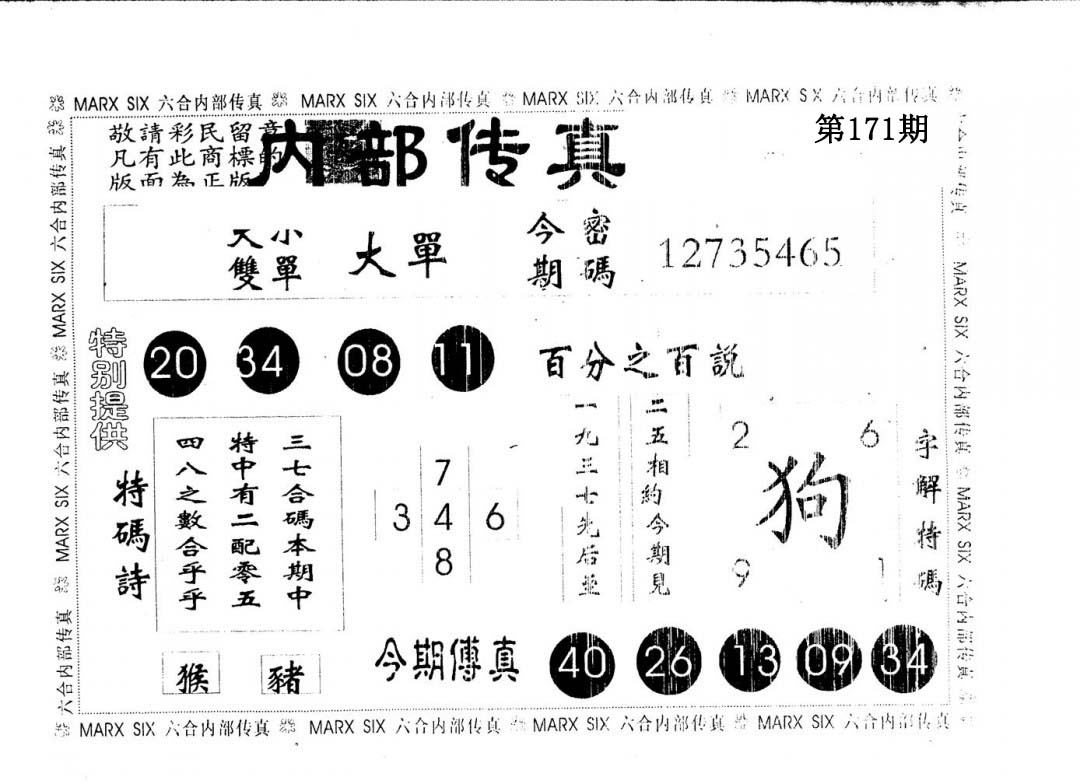 MARX SIX 六合内部传真 MARX SIX 六合内部传真 MARX SIX 六合内部传真 MARX SIX 六合内部传真
第171期
敬請彩民留意
凡有此商標的
版面為正版
内部传真
大小
雙單
大單
今期
密碼
12735465
特别提供
20 34 08 11
百分之百説
特碼詩
三七合碼本期中
特中有二配零五
四八之數合乎乎
7
3 4 6
8
二五相約今期見
一九三七先后並
2 6
狗
9 1
字解特碼
猴 豬
今期傳真
40 26 13 09 34
MARX SIX 六合内部传真 MARX SIX 六合内部传真 MARX SIX 六合内部传真 MARX SIX 六合内部传真
六合内部传真 MARX SIX 六合内部传真 MARX SIX 六合内部传真
MARX SIX 六合内部传真 MARX SIX 六合内部传真